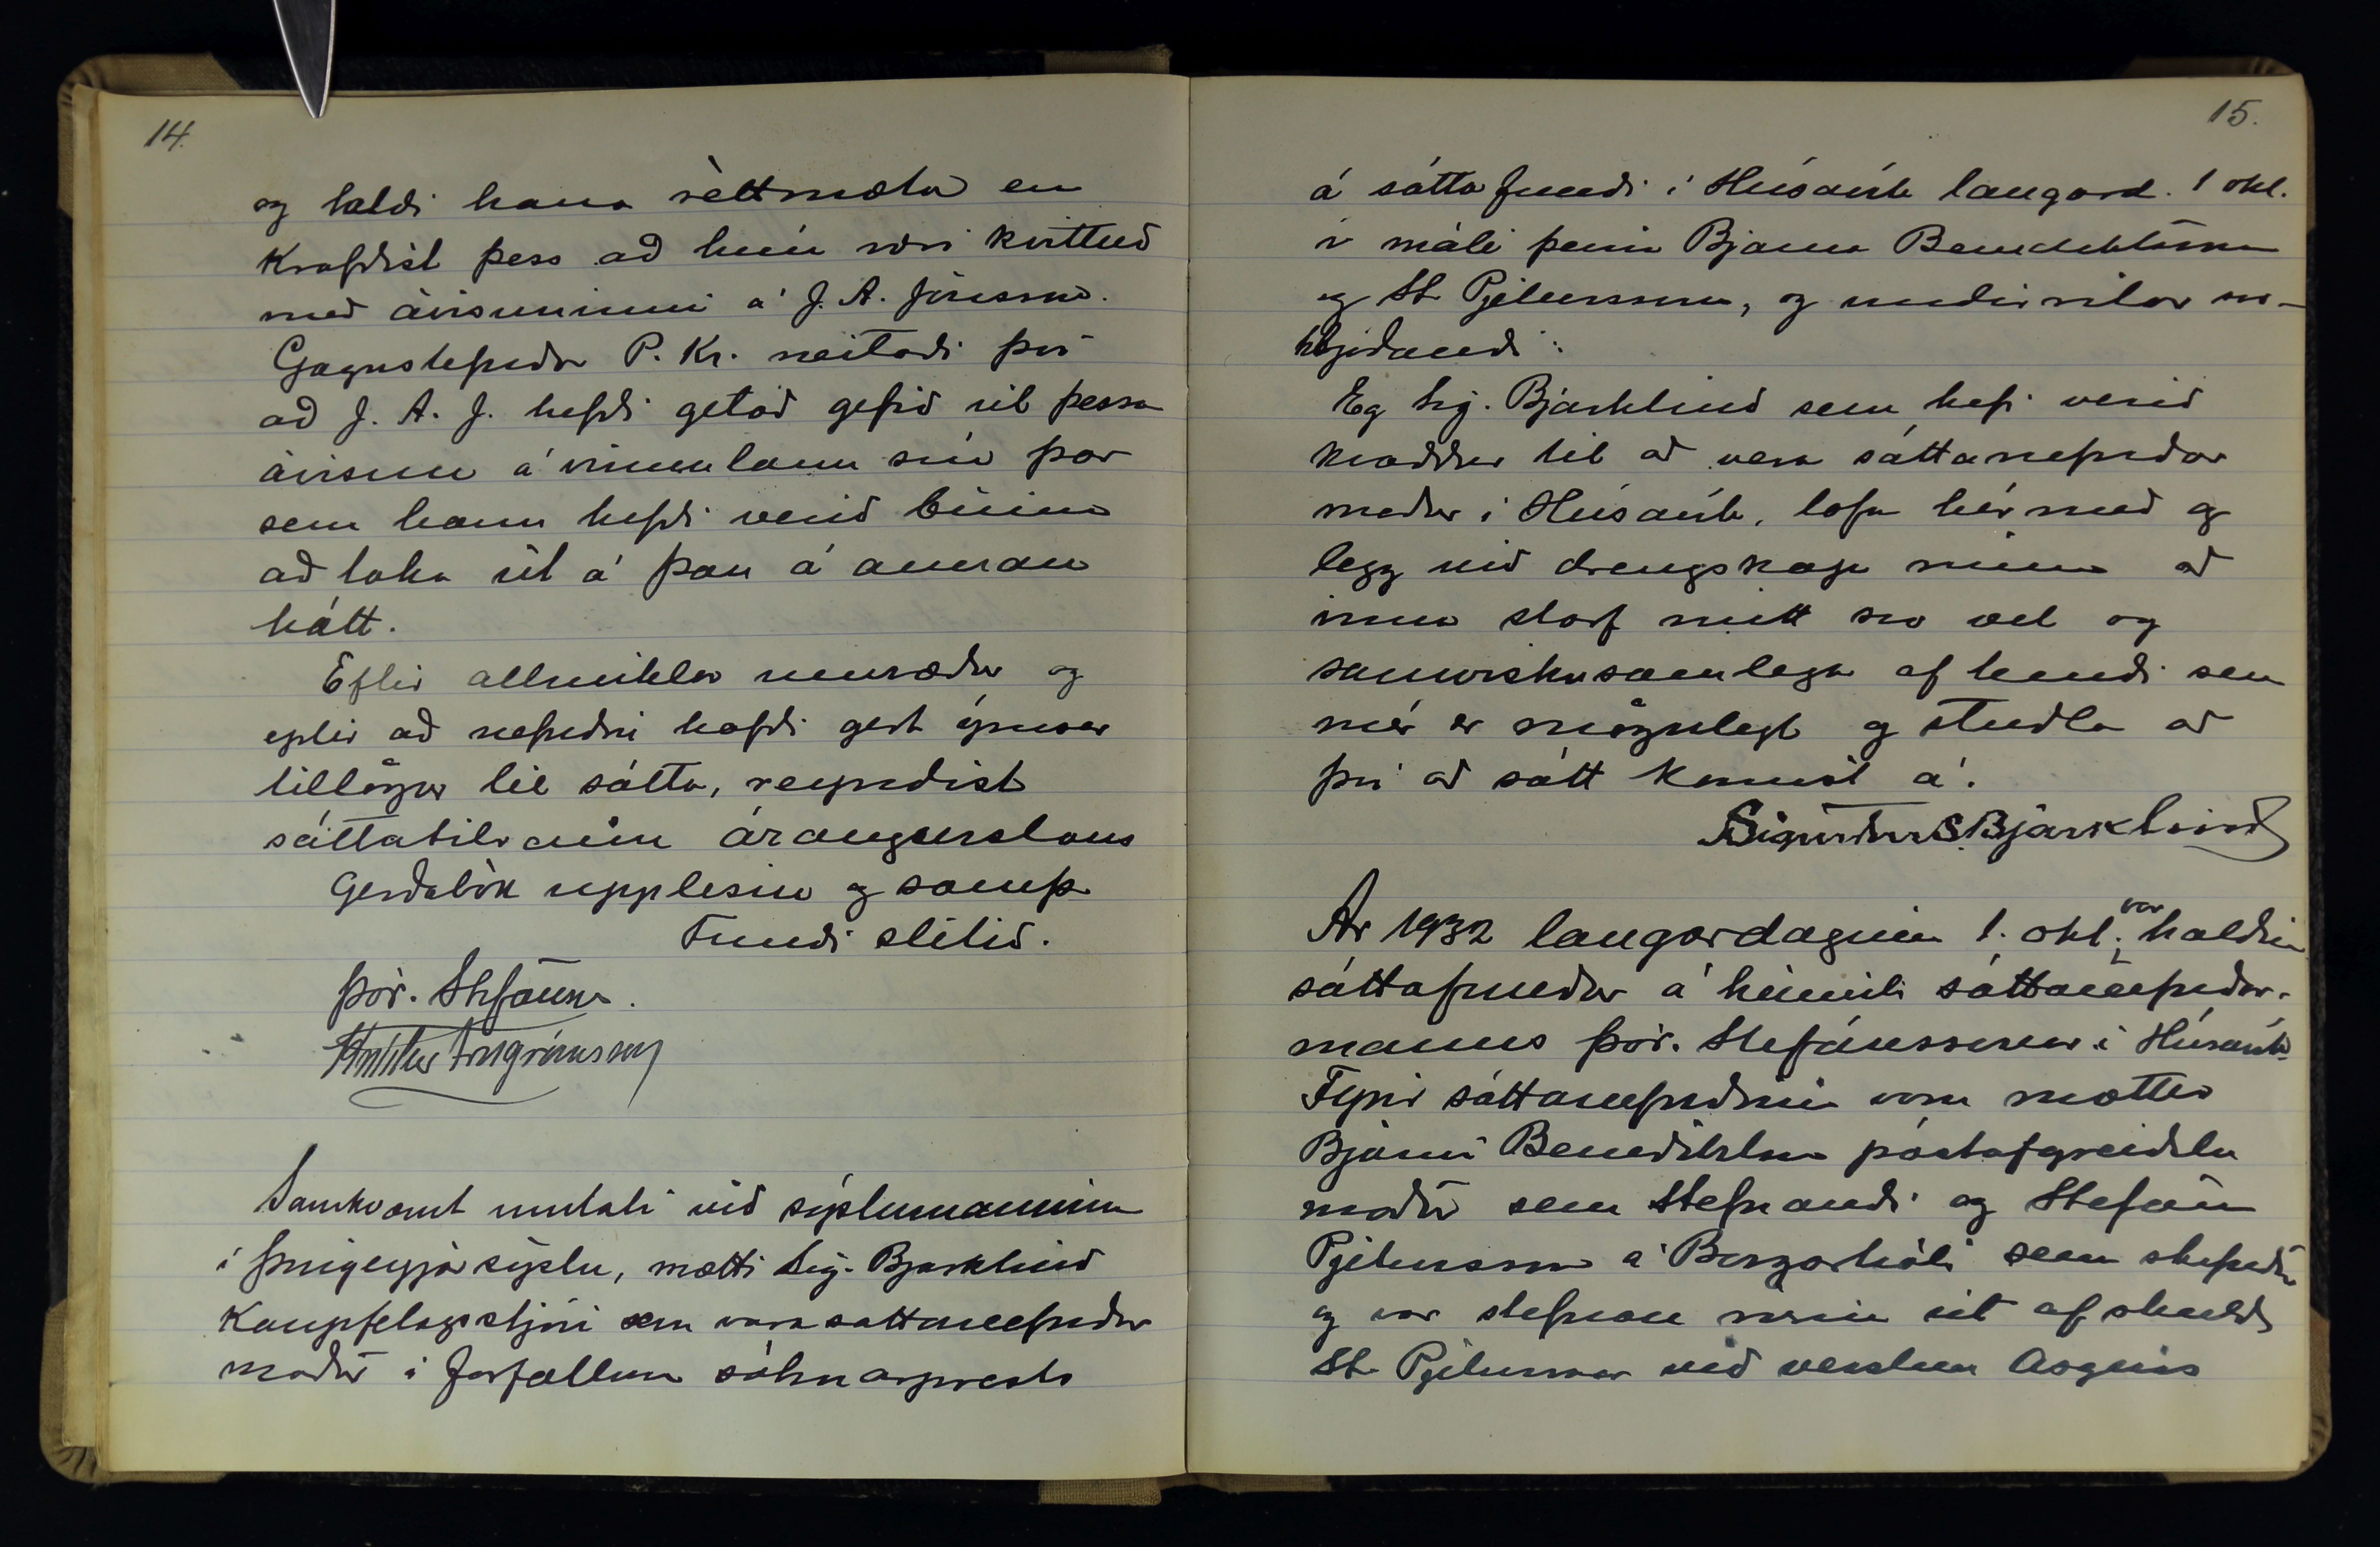 14.
og taldi hana réttmæta en
krafðist þess að hún væri kvittuð
með ávísuninni á J. A. Jónsson.
Gagnstefndur P. Kr. neitaði því
að J. A. J. hefði getað gefið út þessa
ávísun á vinnulaun sín þar
sem hann hefði verið búinn
að taka út á þau á annan
hátt.
Eftir allmiklar umræður og
eptir að nefndin hafði gert ýmsar
tillögur til sátta, reyndist
sáttatilraunin árangurslaus
Gerðabók upplesin og samþ.
Fundi slitið.
Þór. Stefánss.
Arngrímsson
Samkvæmt umtali við sýslumanninn
í Þingeyjarsýslu, mætti Sig. Bjarklind
kaupfelagsstjóri sem varasattanefndar
maður í forföllum sóknarprests
15.
á sáttafundi í Húsavík laugard. 1 okt.
í máli þeirra Bjarna Benediktssonar
og St. Pjeturssonar, og undirritar svo-
hljóðandi:
Eg Sig. Bjarklind sem hefi verið
kvaddur til að vera sáttanefndar
maður í Húsavík, lofa hér með og
legg við drengskap minn að
inna starf mitt svo vel og
samvizkusamlega af hendi sem
mér er mögulegt og stuðla að
því að sátt komist á.
Sigurður S. Bjarklind
Ár 1932 laugardaginn 1. okt. var haldinn
sáttafundur á heimili sáttanefndar-
manns Þór. Stefánssonar í Húsavík.
Fyrir sáttanefndinni voru mættir
Bjarni Benediktsson póstafgreiðslu
maður sem stefnandi og Stefán
Pjetursson á Borgarhóli sem stefndur
og var stefnan risin út af skuld
St. Pjeturssonar við verslun